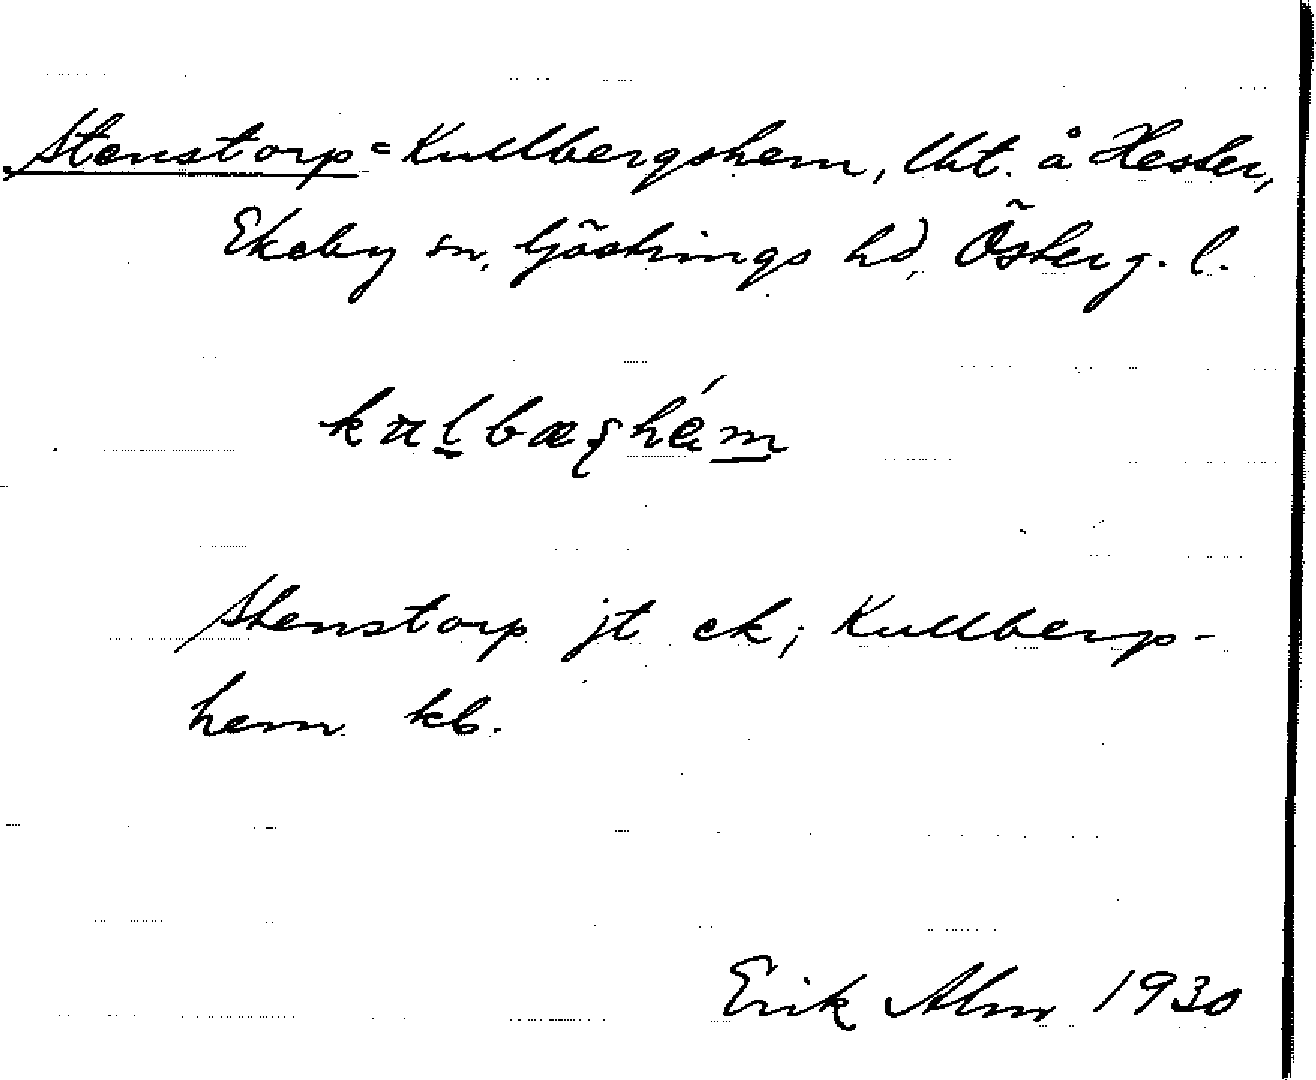 Stenstorp = Kullbergshem, lht. å Hester,
Ekeby sn, Göstrings hd, Österg. l.
kulbæshém
Stenstorp jt ek; Kullbergs-
hem kb.
Erik Alm 1930